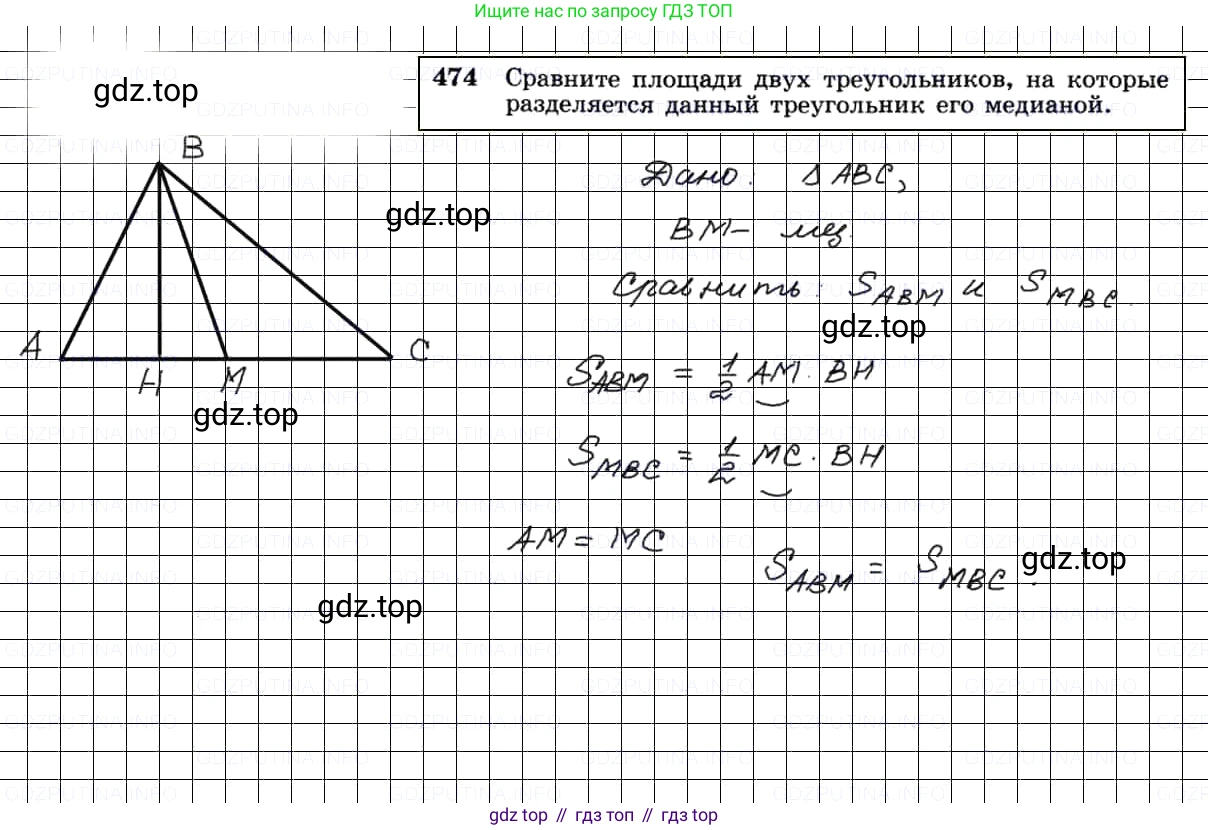 Ищите нас по запросу ГДЗ ТОП
474 Сравните площади двух треугольников, на которые
разделяется данный треугольник его медианой.
gdz.top
B
A
H
M
C
gdz.top
gdz.top
Дано: Δ ABC,
BM – мед.
Сравнить: S_ABM и S_MBC.
gdz.top
S_ABM = 1/2 AM · BH
S_MBC = 1/2 MC · BH
AM = MC
S_ABM = S_MBC.
gdz.top
gdz.top
GDZPUTINA.INFO
gdz top // гдз топ // gdz top